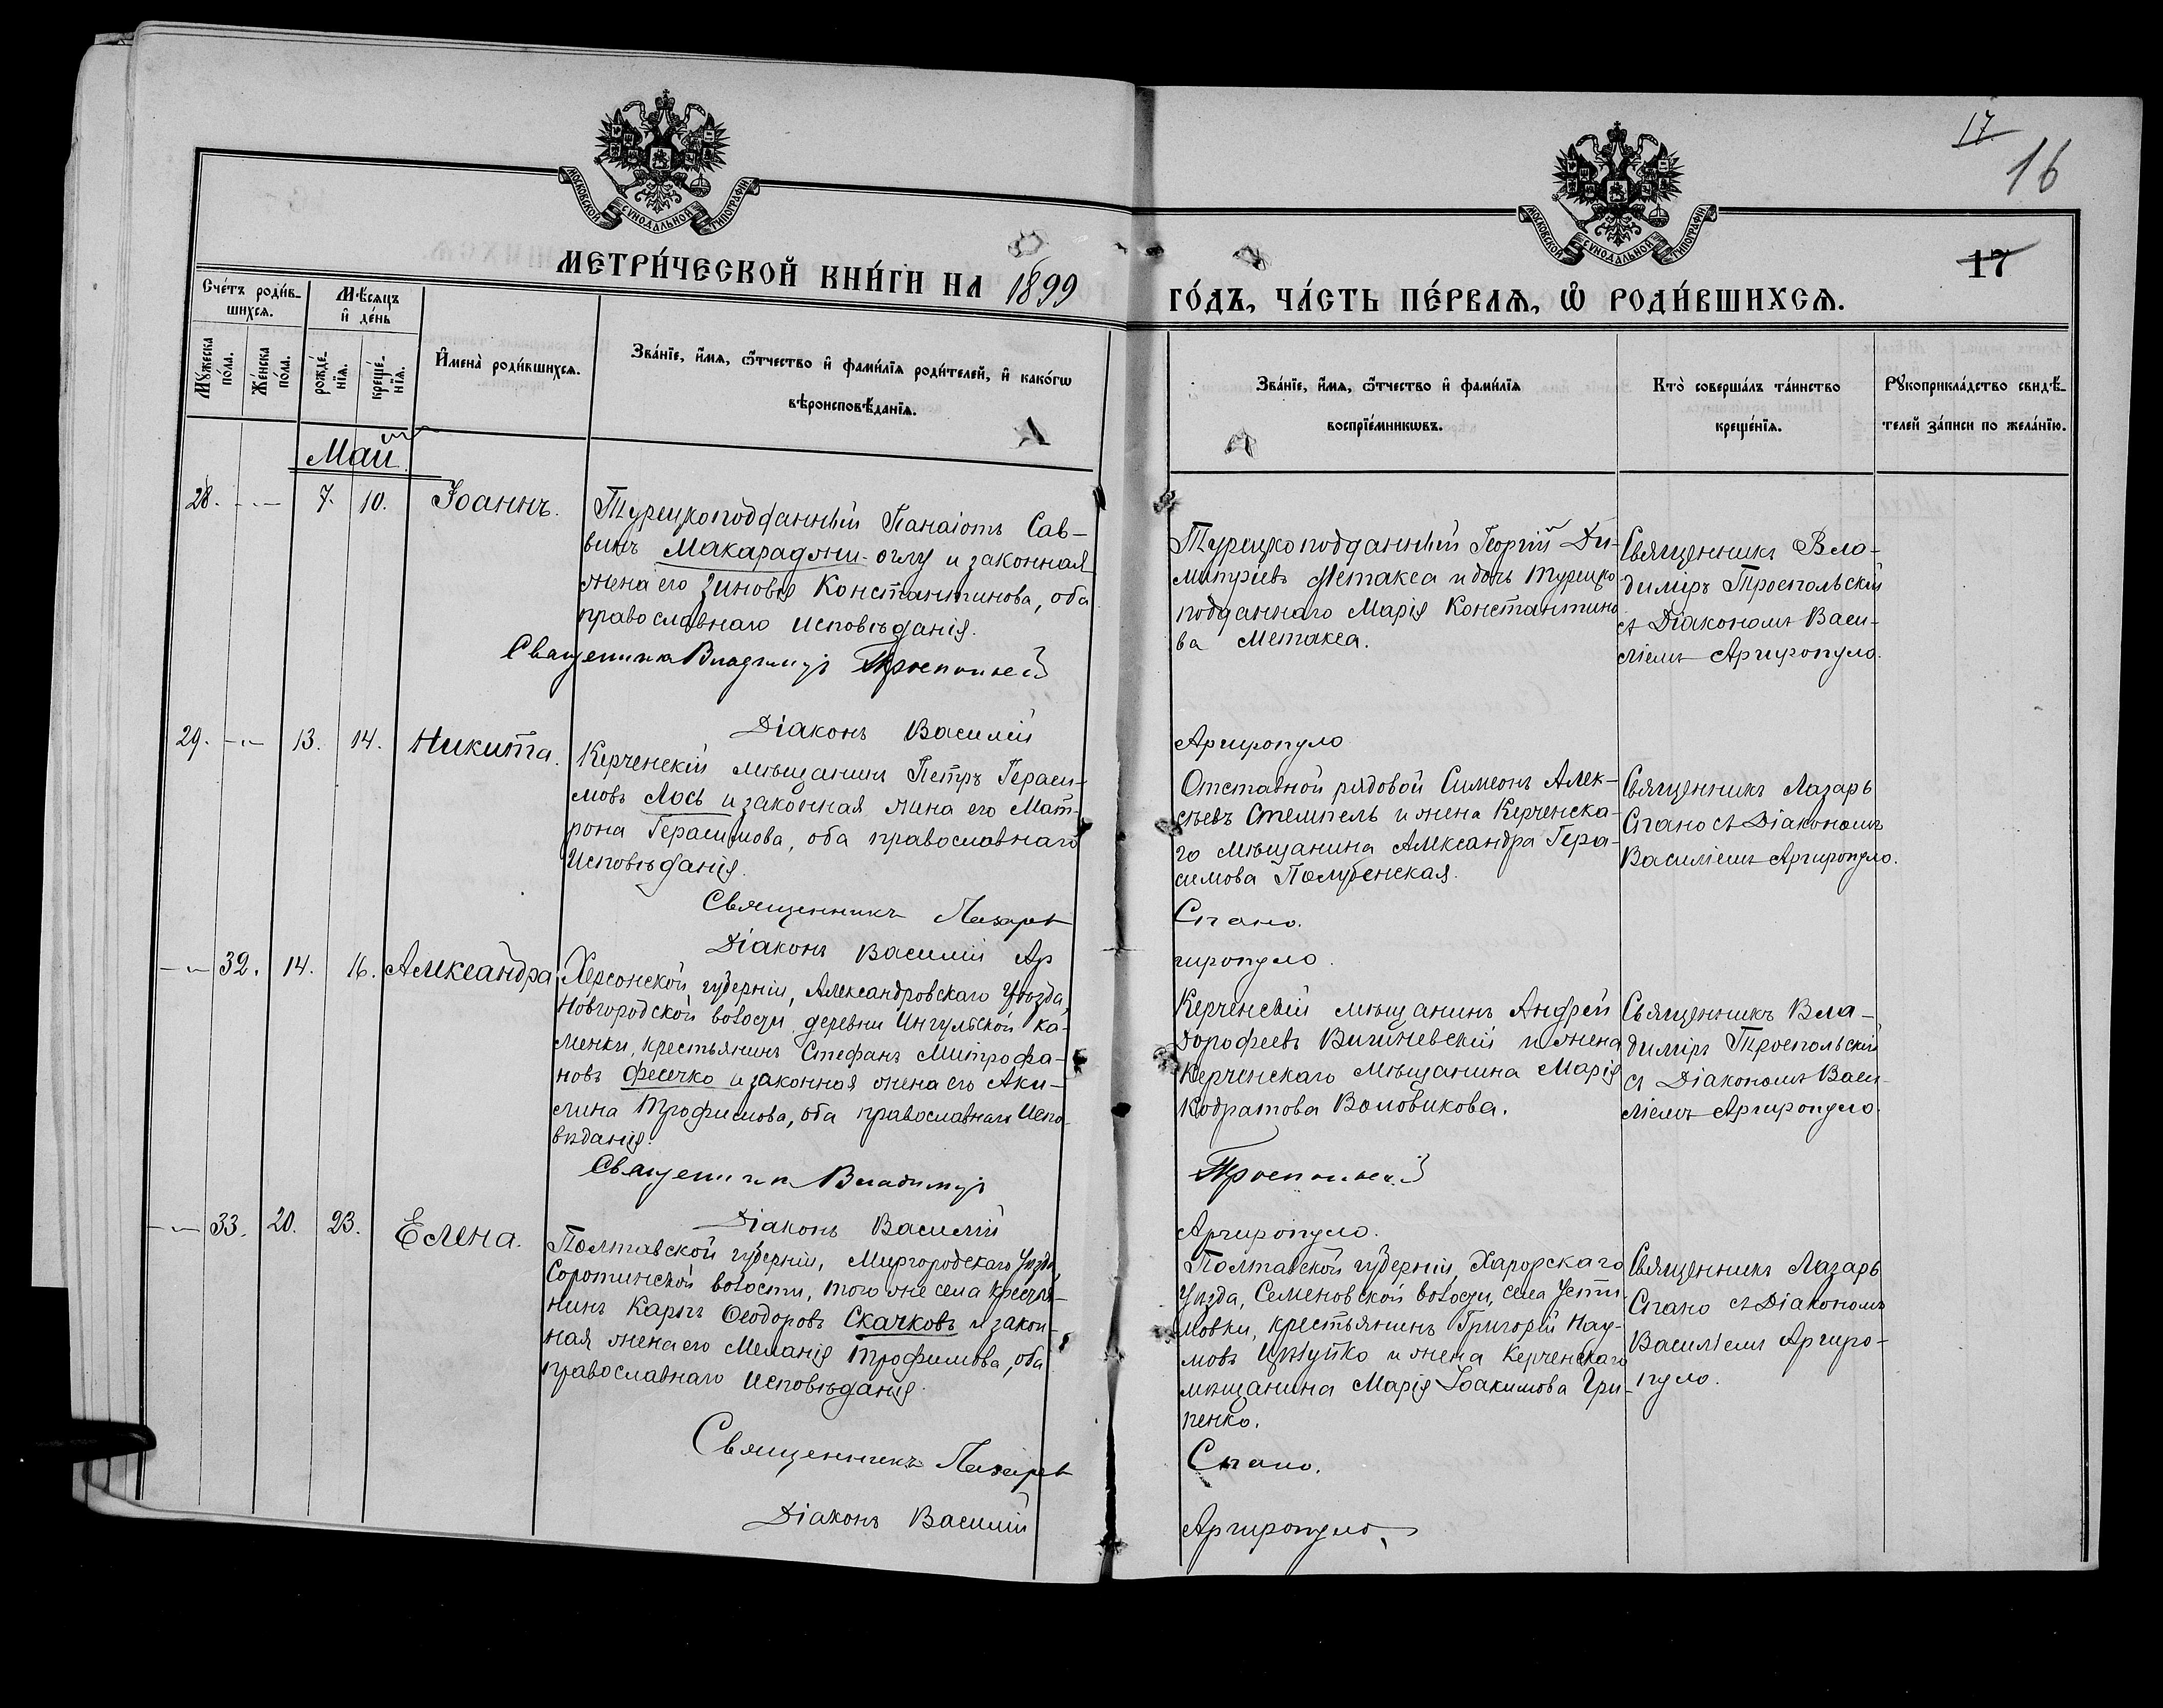 17
16
МОСКОВСКОЙ СѴНОДАЛЬНОЙ ТИПОГРАФІИ
МОСКОВСКОЙ СѴНОДАЛЬНОЙ ТИПОГРАФІИ
17
МЕТРИ́ЧЕСКОЙ КНИ́ГИ НА 1899
ГО́ДЪ, ЧА́СТЬ ПЕ́РВАѦ, Ѽ РОДИ́ВШИХСѦ.
Сче́тъ роди́в-
шихсѧ.
Мꙋ́жеска по́ла.
Же́нска по́ла.
Мѣ́сѧцъ
и҆ де́нь
рожде́-
нїѧ.
креще́-
нїѧ.
И҆мена̀ роди́вшихсѧ.
Зва́нїе, и҆́мѧ, ѻ҆́тчество и҆ фами́лїѧ роди́телей, и҆ како́гѡ
вѣроисповѣ́данїѧ.
Зва́нїе, и҆́мѧ, ѻ҆́тчество и҆ фами́лїѧ
воспрїе́мникѡвъ.
Кто̀ соверша́лъ та́инство
креще́нїѧ.
Рꙋкоприкла́дство свидѣ́-
телей за́писи по жела́нїю.
Май.
28. - - — 7. 10. Іоаннъ.
Турецкоподданный Панаіотъ Сав-
винъ Макараджи-оглу и законная
жена его Зиновія Константинова, оба
православнаго исповѣданія.
Священникъ Владиміръ Троепольскій
Діаконъ Василій
Турецкоподданный Георгій Ди-
митріевъ Метакса и дочь турецко
подданнаго Марія Константино
ва Метакса.
Аргиропуло
Священникъ Вла-
диміръ Троепольскій
съ Діакономъ Васи-
ліемъ Аргиропуло.
29. -„- 13. 14. Никита.
Керченскій мѣщанинъ Петръ Гераси-
мовъ Лось и законная жена его Мат-
рона Герасимова, оба православнаго
исповѣданія.
Священникъ Лазарь
Діаконъ Василій Ар
Отставной рядовой Симеонъ Алек-
сѣевъ Стемпель и жена Керченска-
го мѣщанина Александра Гера-
симова
Спано.
гиропуло.
Священникъ Лазарь
Спано съ Діакономъ
Василіемъ Аргиропуло.
-„- 32. 14. 16. Александра
Херсонской губерніи, Александровскаго Уѣзда,
Новгородской волости деревни Ингульской Ка-
менки, крестьянинъ Стефанъ Митрофа-
новъ Фесечко и законная жена его Аки-
лина Трофимова, оба православнаго испо-
вѣданія.
Священникъ Владиміръ
Діаконъ Василій
Керченскій мѣщанинъ Андрей
Дорофеевъ и жена
Керченскаго мѣщанина Марія
Кодратова Воловикова.
Троепольскій
Аргиропуло.
Священникъ Вла-
диміръ Троепольскій
съ Діакономъ Васи-
ліемъ Аргиропуло.
-„- 33. 20. 23. Елена.
Полтавской губерніи, Миргородскаго Уѣзда,
Сорочинской волости, того же села крестья-
нинъ Карпъ Ѳеодоровъ Скачковъ и закон-
ная жена его Меланія Трофимова, оба
православнаго исповѣданія.
Священникъ Лазарь
Діаконъ Василій
Полтавской губерніи, Харорскаго
Уѣзда, Семеновской волости, села Усти-
мовки, крестьянинъ Григорій Нау-
мовъ и жена Керченскаго
мѣщанина Марія Іоакимова Гри-
пенко.
Спано.
Аргиропуло.
Священникъ Лазарь
Спано съ Діакономъ
Василіемъ Аргиро-
пуло.